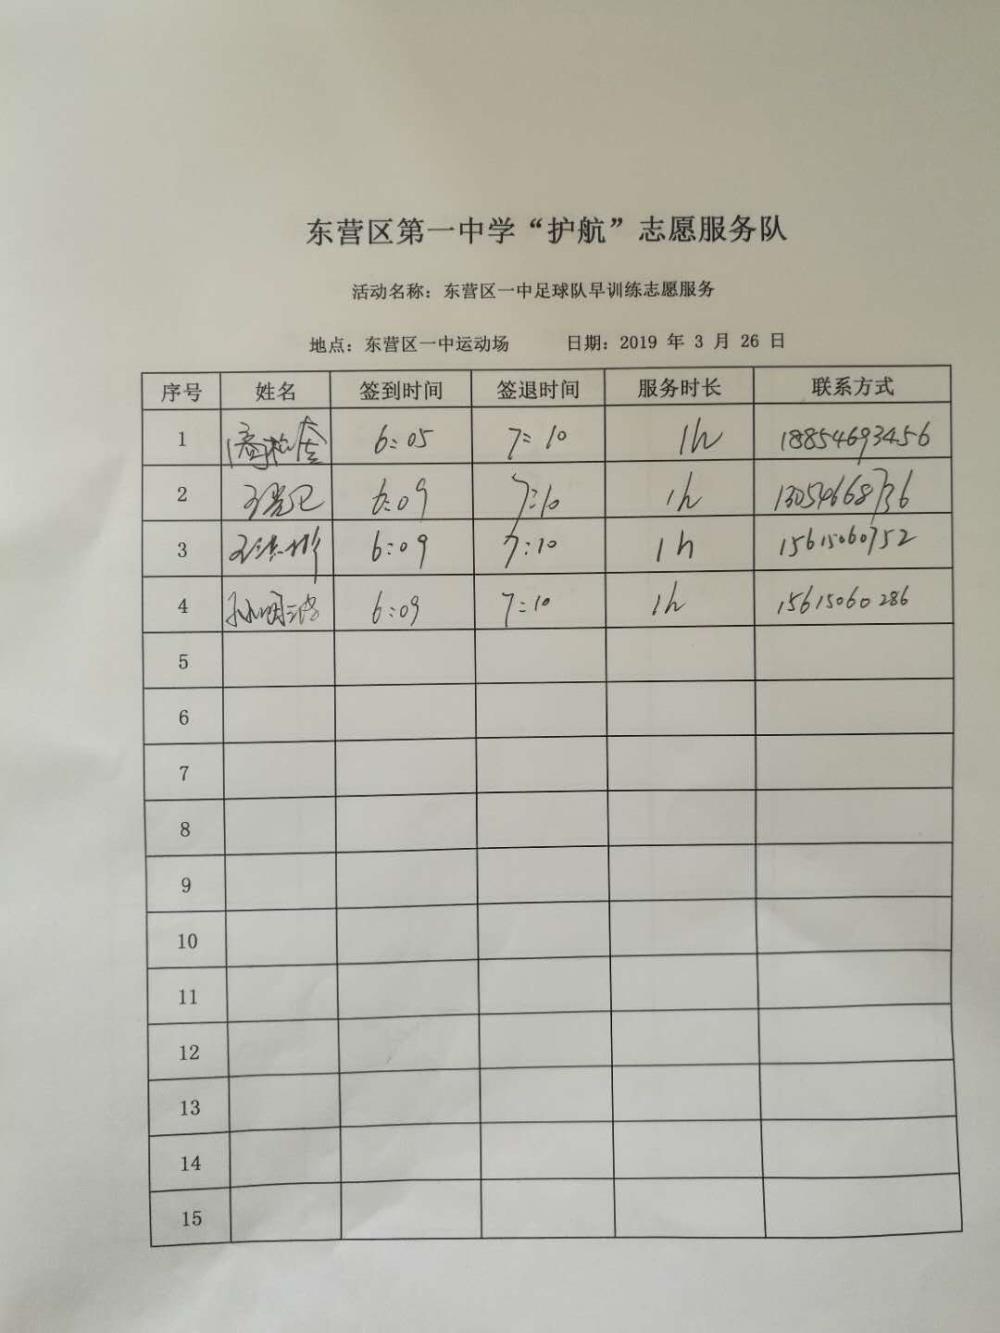 东营区第一中学“护航”志愿服务队
活动名称：东营区一中足球队早训练志愿服务
地点：东营区一中运动场 日期：2019 年 3 月 26 日
序号 姓名 签到时间 签退时间 服务时长 联系方式
1 6:05 7:10 1h 18854693456
2 6:09 7:10 1h 13054668736
3 6:09 7:10 1h 15615060752
4 6:09 7:10 1h 15615060286
5
6
7
8
9
10
11
12
13
14
15